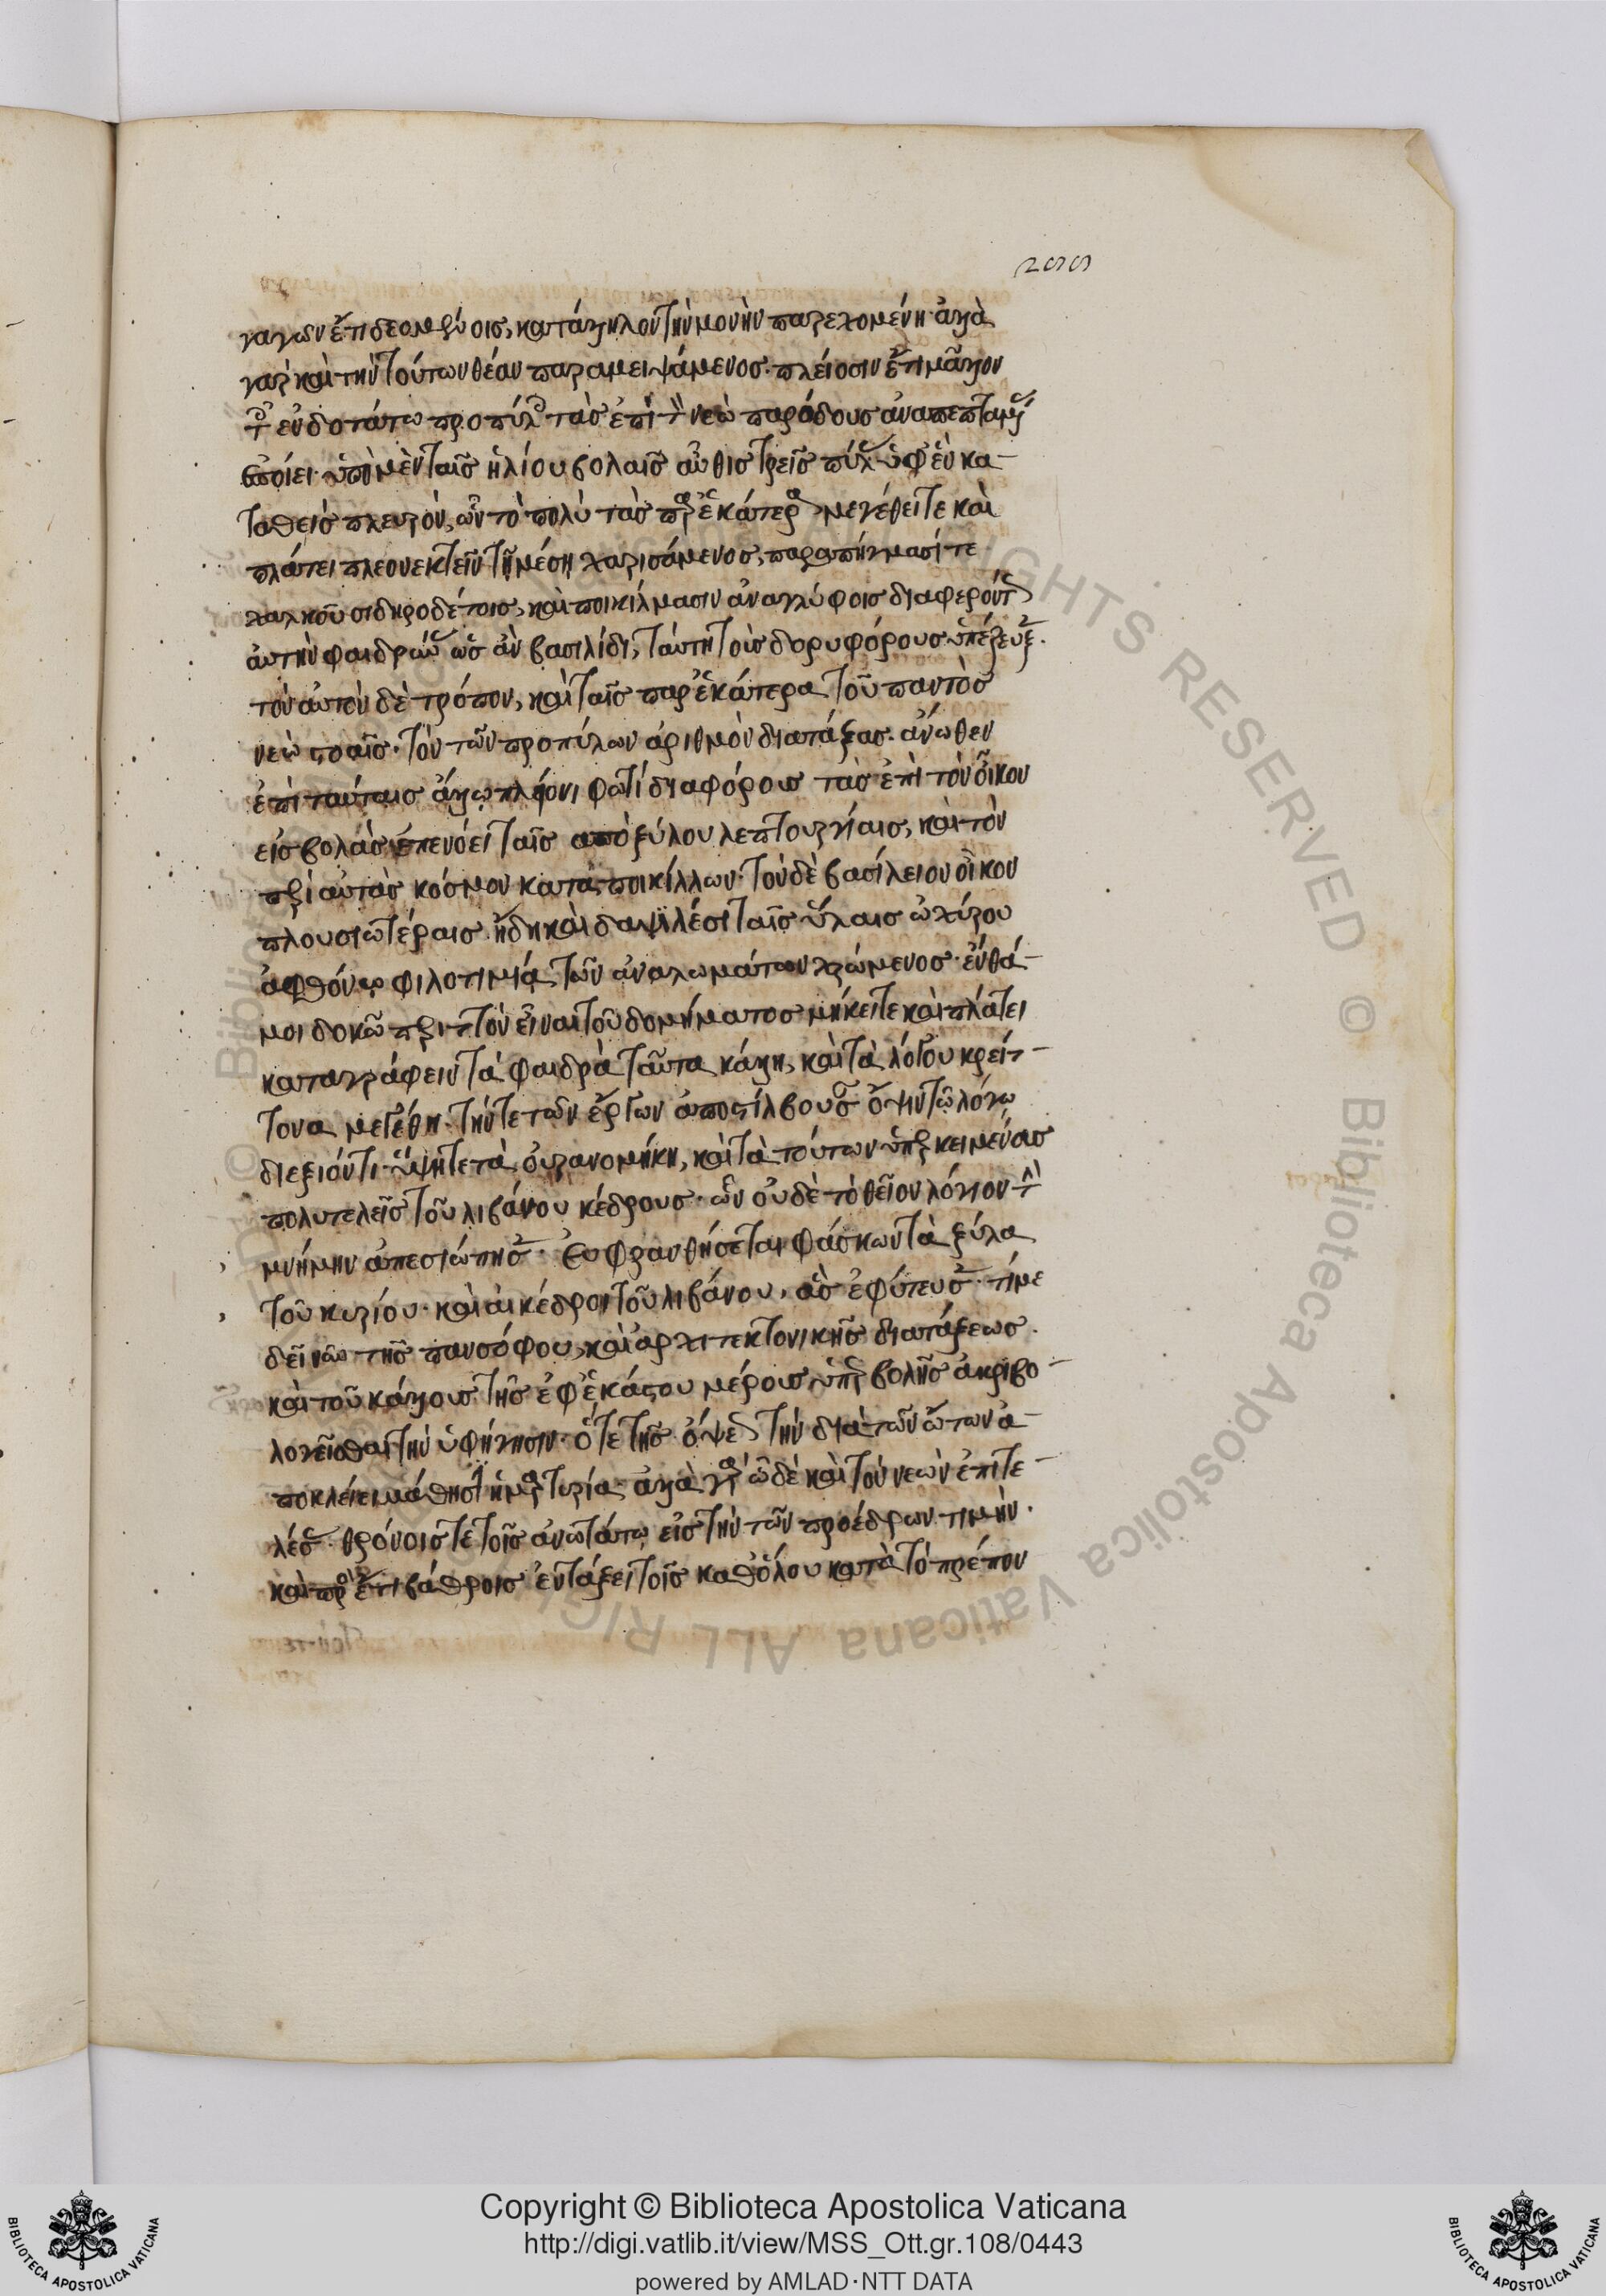 γαγῶν ἔτι δεομένοις, κατάλληλον τὴν μονὴν παρεχομένη· ἀλλὰ
γὰρ καὶ τὴν τούτων θέαν παραμειψάμενος· πλείοσιν ἔτι μᾶλλον
τοῖς ἐνδοτάτω προπύλοις τὰς ἐπὶ τὸν νεὼ παρόδους ἀναπεπταμένας
ἐποίει· ὑπὸ μὲν ταῖς ἡλίου βολαῖς αὖθις τρεῖς πύλας ὑφ' ἓν κα-
ταθεὶς πλευρόν, ὧν τὸ πολὺ τὰς παρ' ἑκάτερα μεγέθει τε καὶ
πλάτει πλεονεκτεῖν τῇ μέσῃ χαρισάμενος, παραπήγμασί τε
χαλκοῦ σιδηροδέτοις, καὶ ποικίλμασιν ἀναγλύφοις διαφερόντως
αὐτὴν φαιδρύνας ὡς ἂν βασιλίδι, ταύτῃ τοὺς δορυφόρους ὑπέζευξε.
τὸν αὐτὸν δὲ τρόπον, καὶ ταῖς παρ' ἑκάτερα τοῦ παντὸς
νεὼ στοαῖς· τὸν τῶν προπύλων ἀριθμὸν διατάξας· ἄνωθεν
ἐπὶ ταύταις ἄλλῳ πλείονι φωτὶ διαφόρους τὰς ἐπὶ τὸν οἶκον
εἰσβολὰς ἐπενόει ταῖς ἀπὸ ξύλου λεπτουργίαις, καὶ τὸν
περὶ αὐτὰς κόσμον καταποικίλλων· τὸν δὲ βασίλειον οἶκον
πλουσιωτέραις ἤδη καὶ δαψιλέσι ταῖς ὕλαις ὠχύρου
ἀφθόνῳ φιλοτιμίᾳ τῶν ἀναλωμάτων χρώμενος· ἔνθά
μοι δοκῶ περιττὸν εἶναι τοῦ δομήματος μήκει τε καὶ πλάτει
καταγράφειν τὰ φαιδρὰ ταῦτα κάλλη, καὶ τὰ λόγου κρείτ-
τονα μεγέθη· τήν τε τῶν ἔργων ἀποστίλβουσαν ὄψιν τῷ λόγῳ
διεξιόντι· ὕψη τε τὰ οὐρανομήκη, καὶ τὰ τούτων ὑπερκειμένας
πολυτελεῖς τοῦ λιβάνου κέδρους· ὧν οὐδὲ τὸ θεῖον λόγιον τὴν
μνήμην ἀπεσιώπησε· εὐφρανθήσεται φάσκων τὰ ξύλα
τοῦ κυρίου· καὶ αἱ κέδροι τοῦ λιβάνου, ἃς ἐφύτευσε· τί με
δεῖ νῦν τῆς πανσόφου, καὶ ἀρχιτεκτονικῆς διατάξεως·
καὶ τοῦ κάλλους τῆς ἐφ' ἑκάστου μέρους ὑπερβολῆς ἀκριβο-
λογεῖσθαι τὴν ὑφήγησιν· ὅτε τῆς ὄψεως τὴν διὰ τῶν ὤτων ἀ-
ποκλείει μάθησιν ἡ μαρτυρία· ἀλλὰ γὰρ ὧδε καὶ τὸν νεὼν ἐπιτε-
λέσας· θρόνοις τε τοῖς ἀνωτάτω, εἰς τὴν τῶν προέδρων τιμὴν·
καὶ πρὸς ἔτι βάθροις ἐν τάξει τοῖς καθόλου κατὰ τὸ πρέπον
Copyright © Biblioteca Apostolica Vaticana
http://digi.vatlib.it/view/MSS_Ott.gr.108/0443
powered by AMLAD·NTT DATA